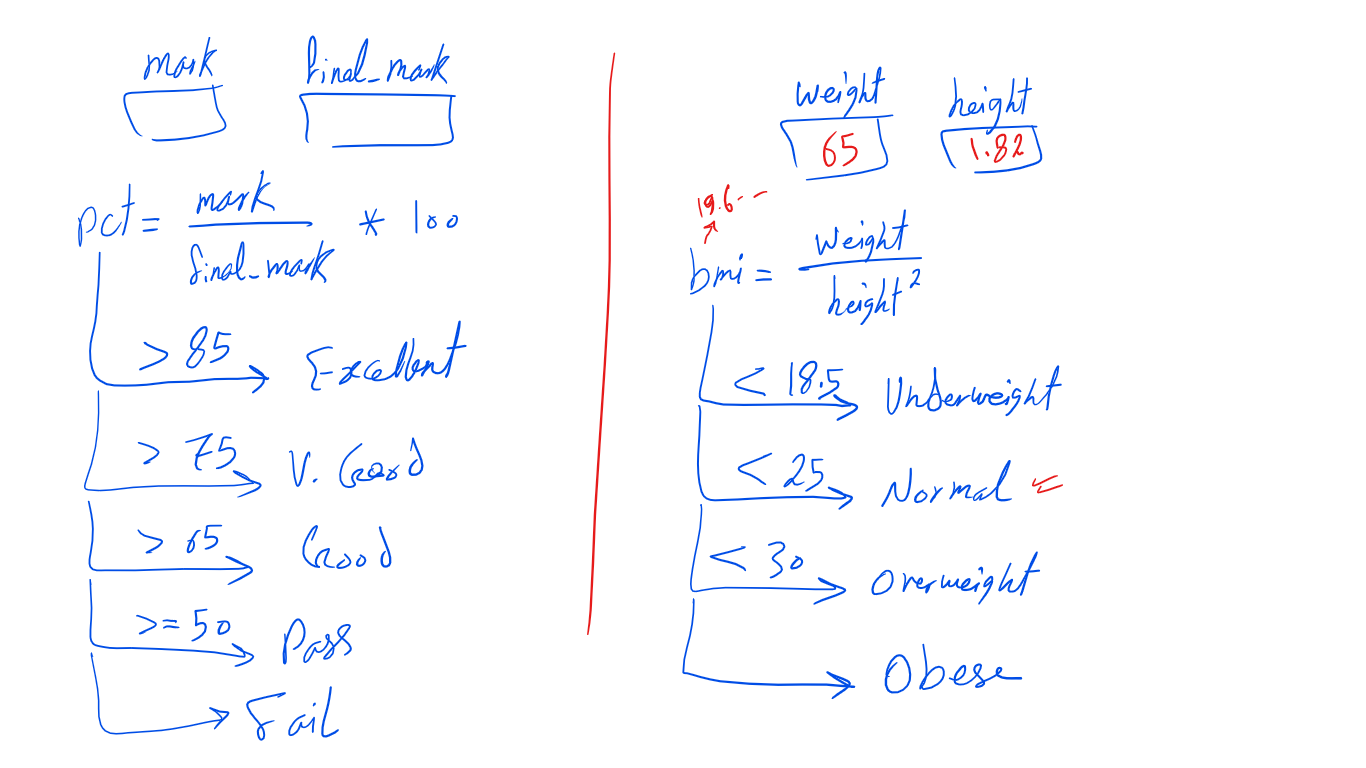 mark final_mark
pct = mark / final_mark * 100
> 85 Excellent
> 75 V. Good
> 65 Good
>= 50 Pass
Fail
weight height
65 1.82
19.6--
bmi = weight / height²
< 18.5 Underweight
< 25 Normal
< 30 Overweight
Obese